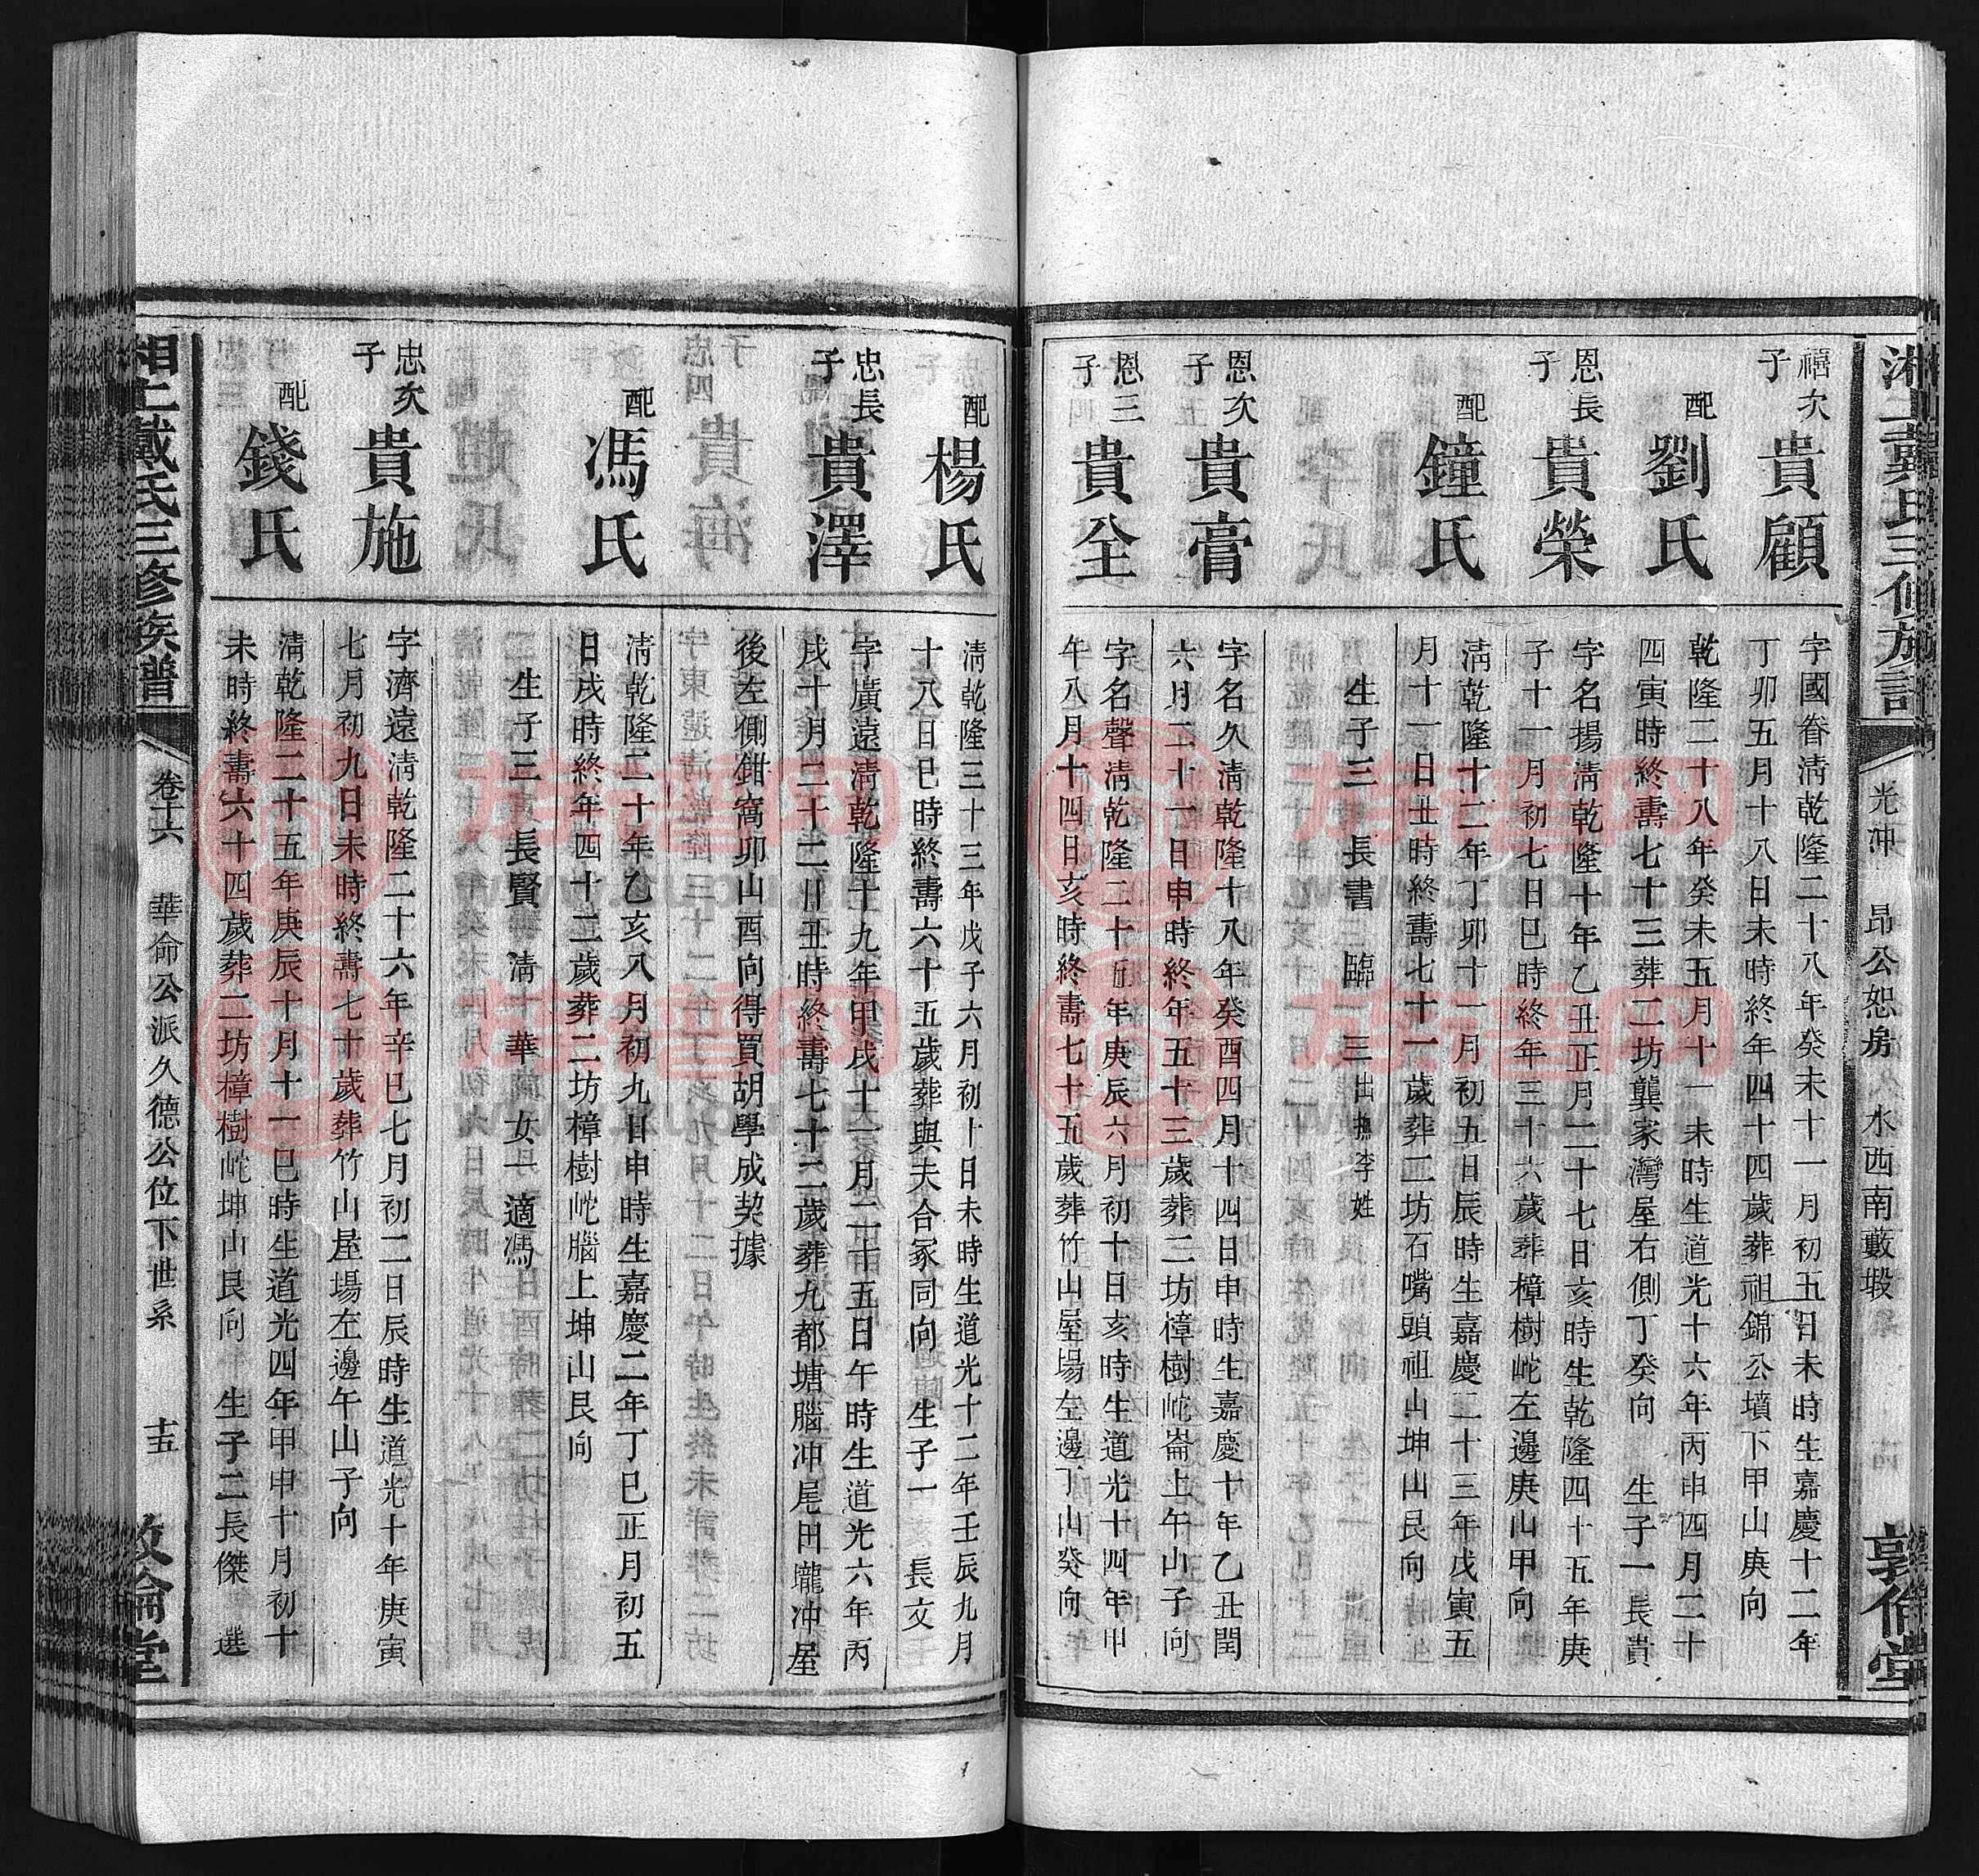 光冲 昂公恕房 水西南藪塅
禧次子
貴顧
字國眷淸乾隆二十八年癸未十一月初五日未時生嘉慶十二年
丁卯五月十八日未時終年四十四歲葬祖錦公墳下甲山庚向
配
劉氏
乾隆二十八年癸未五月十一未時生道光十六年丙申四月二十
四寅時終壽七十三葬二坊龔家灣屋右側丁癸向 生子一長貴
恩長子
貴榮
字名揚淸乾隆十年乙丑正月二十七日亥時生乾隆四十五年庚
子十一月初七日巳時終年三十六歲葬樟樹𡵺左邊庚山甲向
配
鐘氏
淸乾隆十二年丁卯十一月初五日辰時生嘉慶二十三年戊寅五
月十一日丑時終壽七十一歲葬二坊石嘴頭祖山坤山艮向
生子三 長書 臨 三出撫李姓
恩次子
貴膏
字名久淸乾隆十八年癸酉四月十四日申時生嘉慶十年乙丑閏
六月二十七日申時終年五十三歲葬二坊樟樹𡵺崙上午山子向
恩三子
貴全
字名聲淸乾隆二十五年庚辰六月初十日亥時生道光十四年甲
午八月十四日亥時終壽七十五歲葬竹山屋場左邊丁山癸向
配
楊氏
淸乾隆三十三年戊子六月初十日未時生道光十二年壬辰九月
十八日巳時終壽六十五歲葬與夫合冢同向 生子一 長文
忠長子
貴澤
字廣遠淸乾隆十九年甲戌十一月二十五日午時生道光六年丙
戌十月二十二日丑時終壽七十二歲葬九都塘腦冲尾田壠冲屋
後左側鉗窩卯山酉向得買胡學成契據
配
馮氏
淸乾隆二十年乙亥八月初九日申時生嘉慶二年丁巳正月初五
日戌時終年四十二歲葬二坊樟樹𡵺腦上坤山艮向
生子三 長賢 淸 華 女一適馮
忠次子
貴施
字濟遠淸乾隆二十六年辛巳七月初二日辰時生道光十年庚寅
七月初九日未時終壽七十歲葬竹山屋場左邊午山子向
配
錢氏
淸乾隆二十五年庚辰十月十一巳時生道光四年甲申十月初十
未時終壽六十四歲葬二坊樟樹𡵺坤山艮向 生子二長傑 選
湘上戴氏三修族譜 卷十六 華侖公派久德公位下世系 十五 敦倫堂